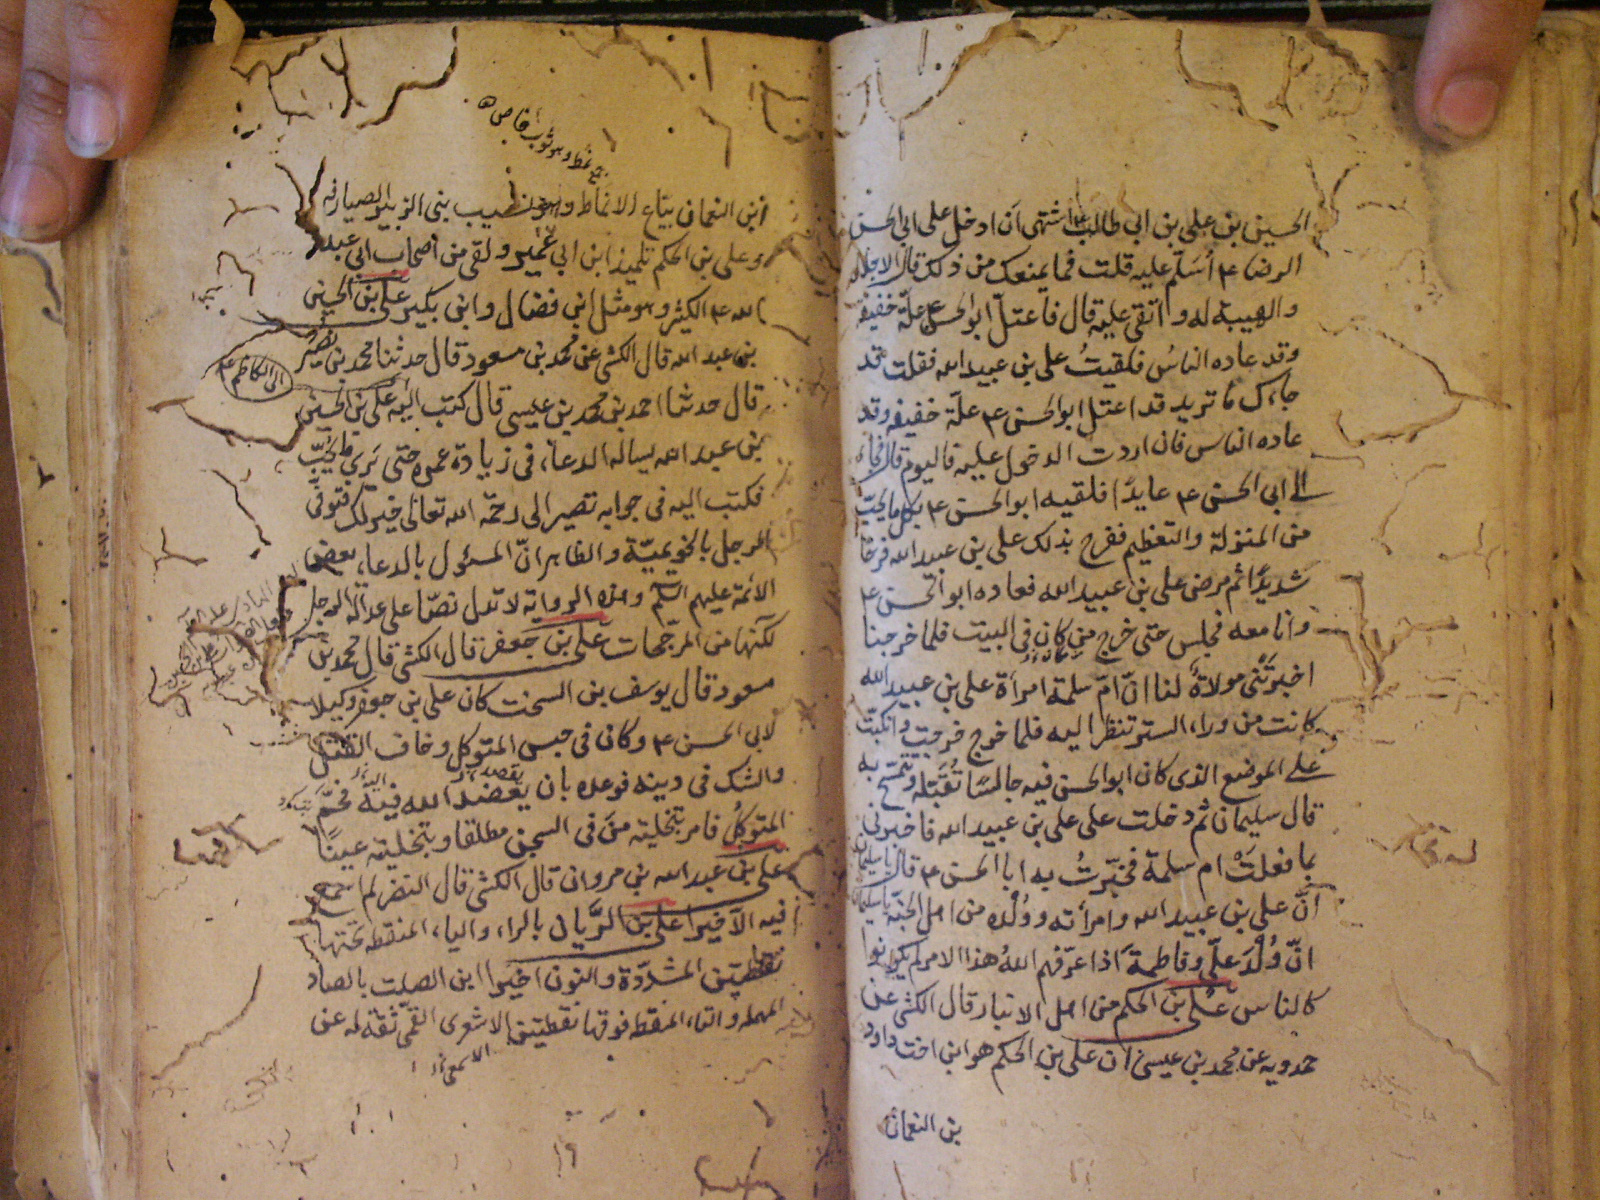 الحسين بن علي بن ابي طالب ع اشتهى ان ادخل على ابي الحسن
الرضا ع أسلّم عليه قلت فما يمنعك من ذلك قال الاجلال
والهيبة له واتقى عليه قال فاعتلّ ابو الحسن ع علّة خفيفة
وقد عاده الناسُ فلقيتُ علي بن عبيد الله فقلت قد
جاءك ما تريد قد اعتل ابو الحسن ع علّة خفيفه وقد
عاده الناس فان اردت الدخول عليه فاليوم قال فجاء
الى ابي الحسن ع عايدًا فلقيه ابو الحسن ع بكل ما يحبّ
من المنزلة والتعظيم ففرح بذلك علي بن عبيد الله فرحًا
شديدًا ثم مرض علي بن عبيد الله فعاده ابو الحسن ع
وانا معه فجلس حتى خرج من كان في البيت فلما خرجنا
اخبرتني مولاةٌ لنا انّ امّ سلمة امرأة علي بن عبيد الله
كانت من وراء الستر تنظر اليه فلما خرج خرجت وانكبّت
على الموضع الذي كان ابو الحسن فيه جالسًا تُقَبّله وتتمسّح به
قال سليمان ثم دخلت على علي بن عبيد الله فاخبرني
بما فعلت ام سلمة فخبّرتُ به ابا الحسن ع قال يا سليمان
انّ علي بن عبيد الله وامرأته ووُلْده من اهل الجنّة يا سليمان
انّ وُلْدَ عليّ وفاطمةَ اذا عرّفهم اللهُ هذا الامر لم يكونوا
كالناس علي بن الحكم من اهل الانبار قال الكشي عن
حمدويه عن محمد بن عيسى ان علي بن الحكم هو ابن اخت داود
بن النعمان
جمع نمط وهو ثوب
ابن النعمان بياع الانماط وهو نسيب بني الزبير الصيارفه
وعلي بن الحكم تلميذ ابن ابي عُمير ولقى من اصحاب ابي عبد
الله ع الكثير وهو مثل ابن فضال وابن بكير علي بن الحسين
بن عبد الله قال الكشي عن محمد بن مسعود قال حدثنا محمد بن نصير
الى الكاظم ع
قال حدثنا احمد بن محمد بن عيسى قال كتب اليه علي بن الحسين
بن عبد الله يساله الدعاء في زيادة عمره حتى يرى ما يحبّ
فكتب اليه في جوابه تصير الى رحمة الله تعالى خير لك فتوفى
الرجل بالخزيميّة والظاهر انّ المسئول بالدعاء بعض
الائمة عليهم السلم وهذه الرواية لا تدل نصّا على عدالة الرجل
لكنها من المرجّحات علي بن جعفر قال الكشي قال محمد بن
مسعود قال يوسف بن السخت كان علي بن جعفر وكيلا
لابي الحسن ع وكان في حبس المتوكل وخاف القتل
والشك في دينه فوعده بان يقصد الله فيه فحمّ
المتوكلُ فامر بتخلية من في السجن مطلقا وبتخليته عينًا
علي بن عبد الله بن مروان قال الكشي قال النضر لم اسمع
فيه الا خيرا علي بن الريّان بالراء والياء المنقطه تحتها
نقطتين المشدّدة والنون اخيرا ابن الصلت بالصاد
المهمله والتاء المنقطه فوقها نقطتين الاشعري القمّي ثقة له عن